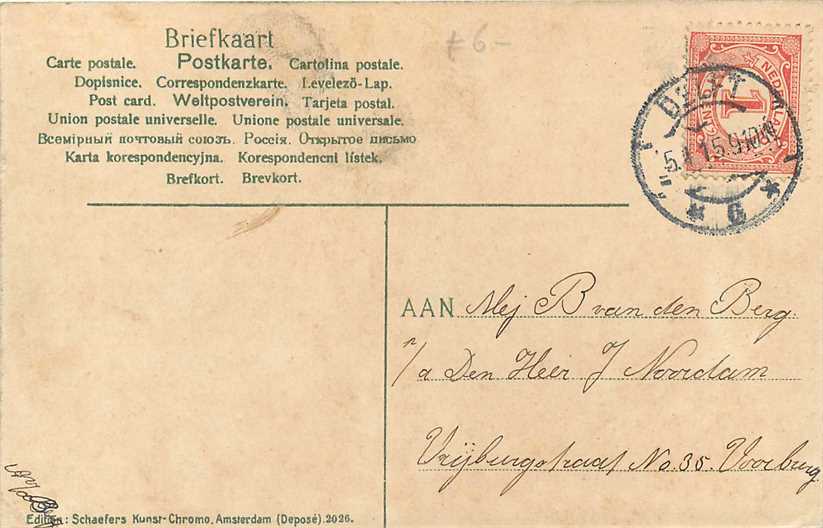 Briefkaart
Carte postale. Postkarte. Cartolina postale.
Dopisnice. Correspondenzkarte. Levelező-Lap.
Post card. Weltpostverein. Tarjeta postal.
Union postale universelle. Unione postale universale.
Всемірный почтовый союзъ. Россія. Открытое письмо
Karta korespondencyjna. Korespondencni listek.
Brefkort. Brevkort.
6-
DELFT
1
NEDERLAND
AAN Mej B van den Berg.
p/a Den Heer J Noordam
Vrijburgstraat No. 35. Voorburg
Edition: Schaefers Kunst-Chromo, Amsterdam (Deposé). 2026.